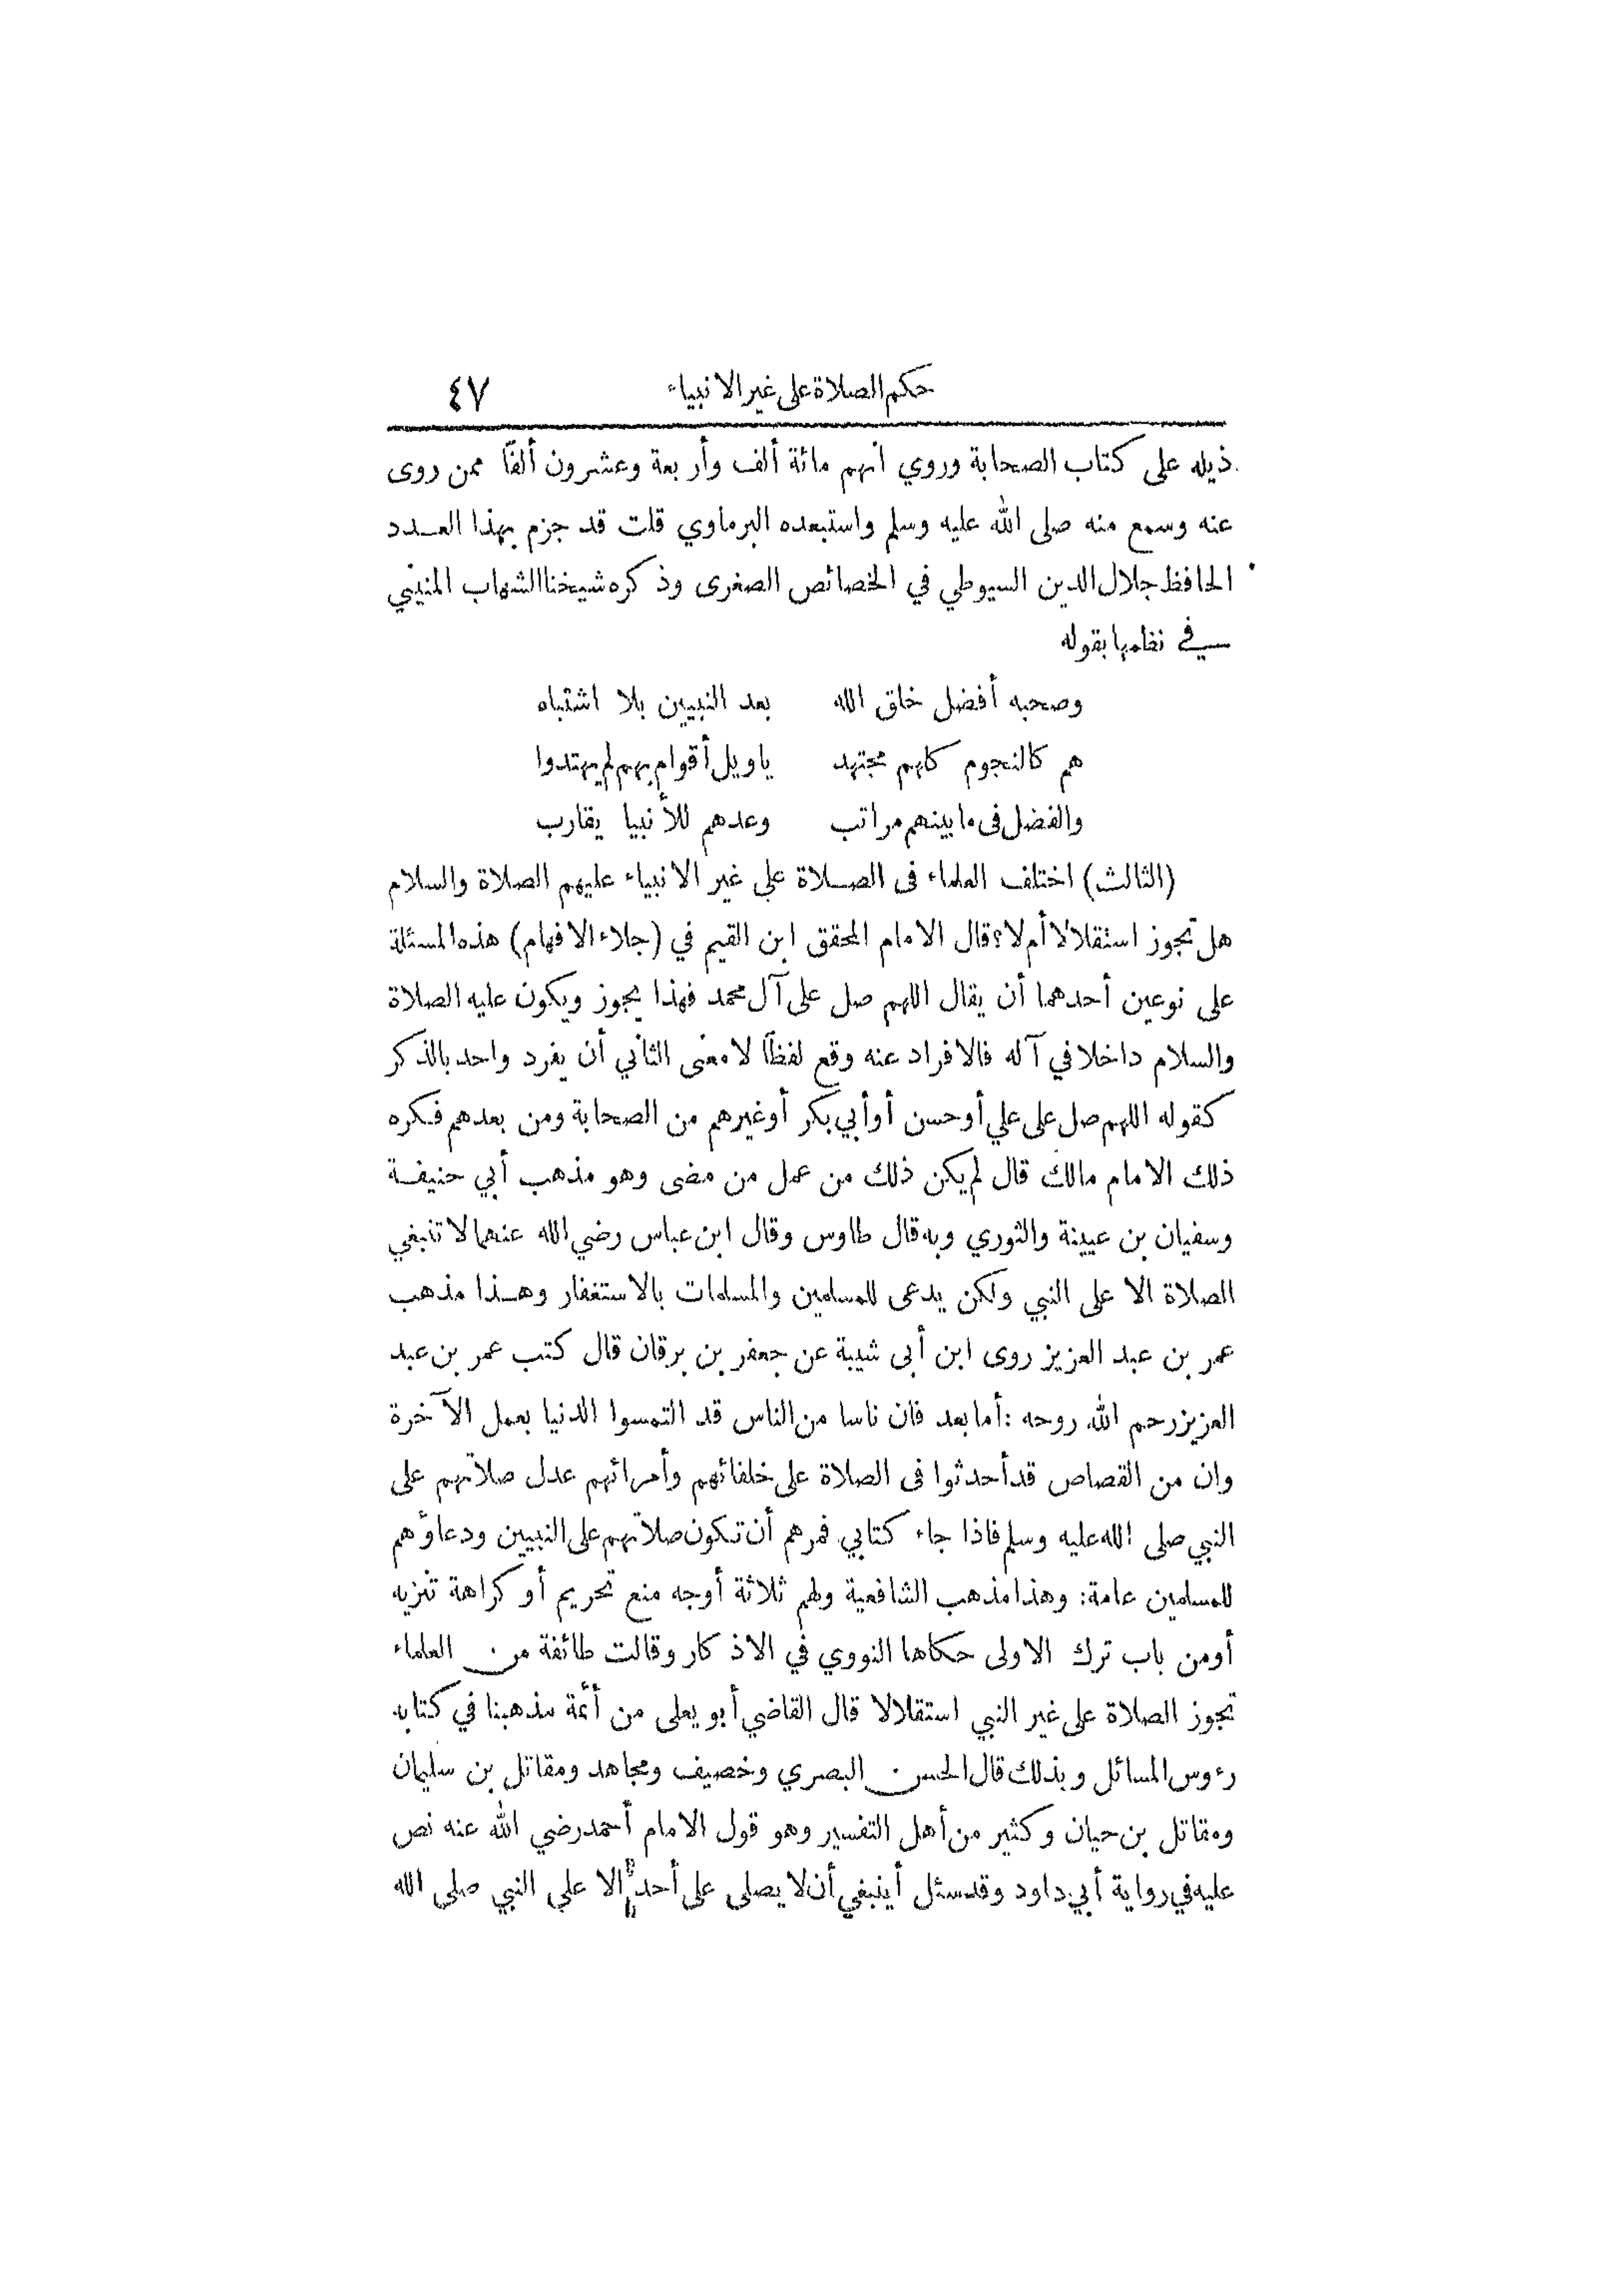 حكم الصلاة على غير الانبياء ٤٧
ذيله على كتاب الصحابة وروي انهم مائة ألف وأربعة وعشرون ألفاً ممن روى
عنه وسمع منه صلى الله عليه وسلم واستبعده البرماوي قلت قد جزم بهذا العدد
الحافظ جلال الدين السيوطي في الخصائص الصغرى وذكره شيخنا الشهاب المنيني
في نظمها بقوله
وصحبه أفضل خلق الله بعد النبيين بلا اشتباه
هم كالنجوم كلهم مجتهد ياويل أقوام بهم لم يهتدوا
والفضل فى مابينهم مراتب وعدهم للأنبيا يقارب
(الثالث) اختلف العلماء فى الصلاة على غير الانبياء عليهم الصلاة والسلام
هل تجوز استقلالا أم لا؟ قال الامام المحقق ابن القيم في (جلاء الافهام) هذه المسئلة
على نوعين أحدهما أن يقال اللهم صل على آل محمد فهذا يجوز ويكون عليه الصلاة
والسلام داخلا في آله فالافراد عنه وقع لفظاً لا معنى الثاني أن يفرد واحد بالذكر
كقوله اللهم صل على علي أو حسن أو أبي بكر أو غيرهم من الصحابة ومن بعدهم فكره
ذلك الامام مالك قال لم يكن ذلك من عمل من مضى وهو مذهب أبي حنيفة
وسفيان بن عيينة والثوري وبه قال طاوس وقال ابن عباس رضي الله عنهما لا تنبغي
الصلاة الا على النبي ولكن يدعى للمسلمين والمسلمات بالاستغفار وهذا مذهب
عمر بن عبد العزيز روى ابن أبى شيبة عن جعفر بن برقان قال كتب عمر بن عبد
العزيز رحم الله روحه : أما بعد فان ناسا من الناس قد التمسوا الدنيا بعمل الآخرة
وان من القصاص قد أحدثوا فى الصلاة على خلفائهم وأمرائهم عدل صلاتهم على
النبي صلى الله عليه وسلم فاذا جاء كتابي فمرهم أن تكون صلاتهم على النبيين ودعاؤهم
للمسلمين عامة: وهذا مذهب الشافعية ولهم ثلاثة أوجه منع تحريم أو كراهة تنزيه
أو من باب ترك الاولى حكاها النووي في الاذكار وقالت طائفة من العلماء
تجوز الصلاة على غير النبي استقلالا قال القاضي أبو يعلى من أئمة مذهبنا في كتابه
رءوس المسائل وبذلك قال الحسن البصري وخصيف ومجاهد ومقاتل بن سليمان
ومقاتل بن حيان وكثير من أهل التفسير وهو قول الامام أحمد رضي الله عنه نص
عليه في رواية أبي داود وقد سئل أينبغي أن لا يصلى على أحد الا على النبي صلى الله